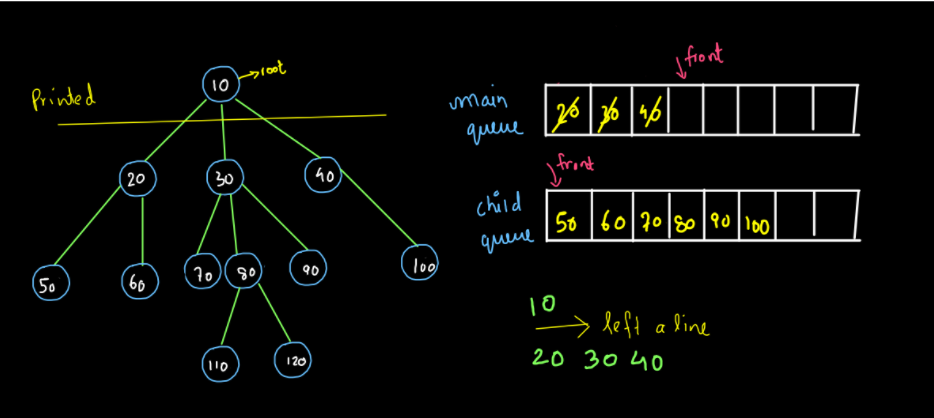 10 → root
Printed
20 30 40
50 60 70 80 90 100
110 120
front
main queue
20 30 40
front
child queue
50 60 70 80 90 100
10
→ left a line
20 30 40